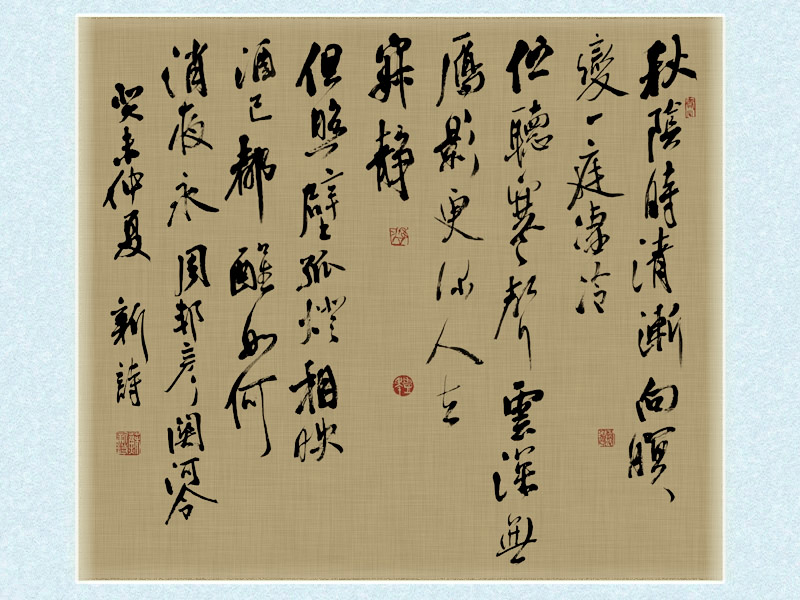 秋陰時清漸向暝
變一庭凄冷
伫聽寒聲雲深無
鴈影更深人去
寂靜
但照壁孤燈相映
酒已都醒如何
消夜永周邦彥關河令
癸未仲夏新詩